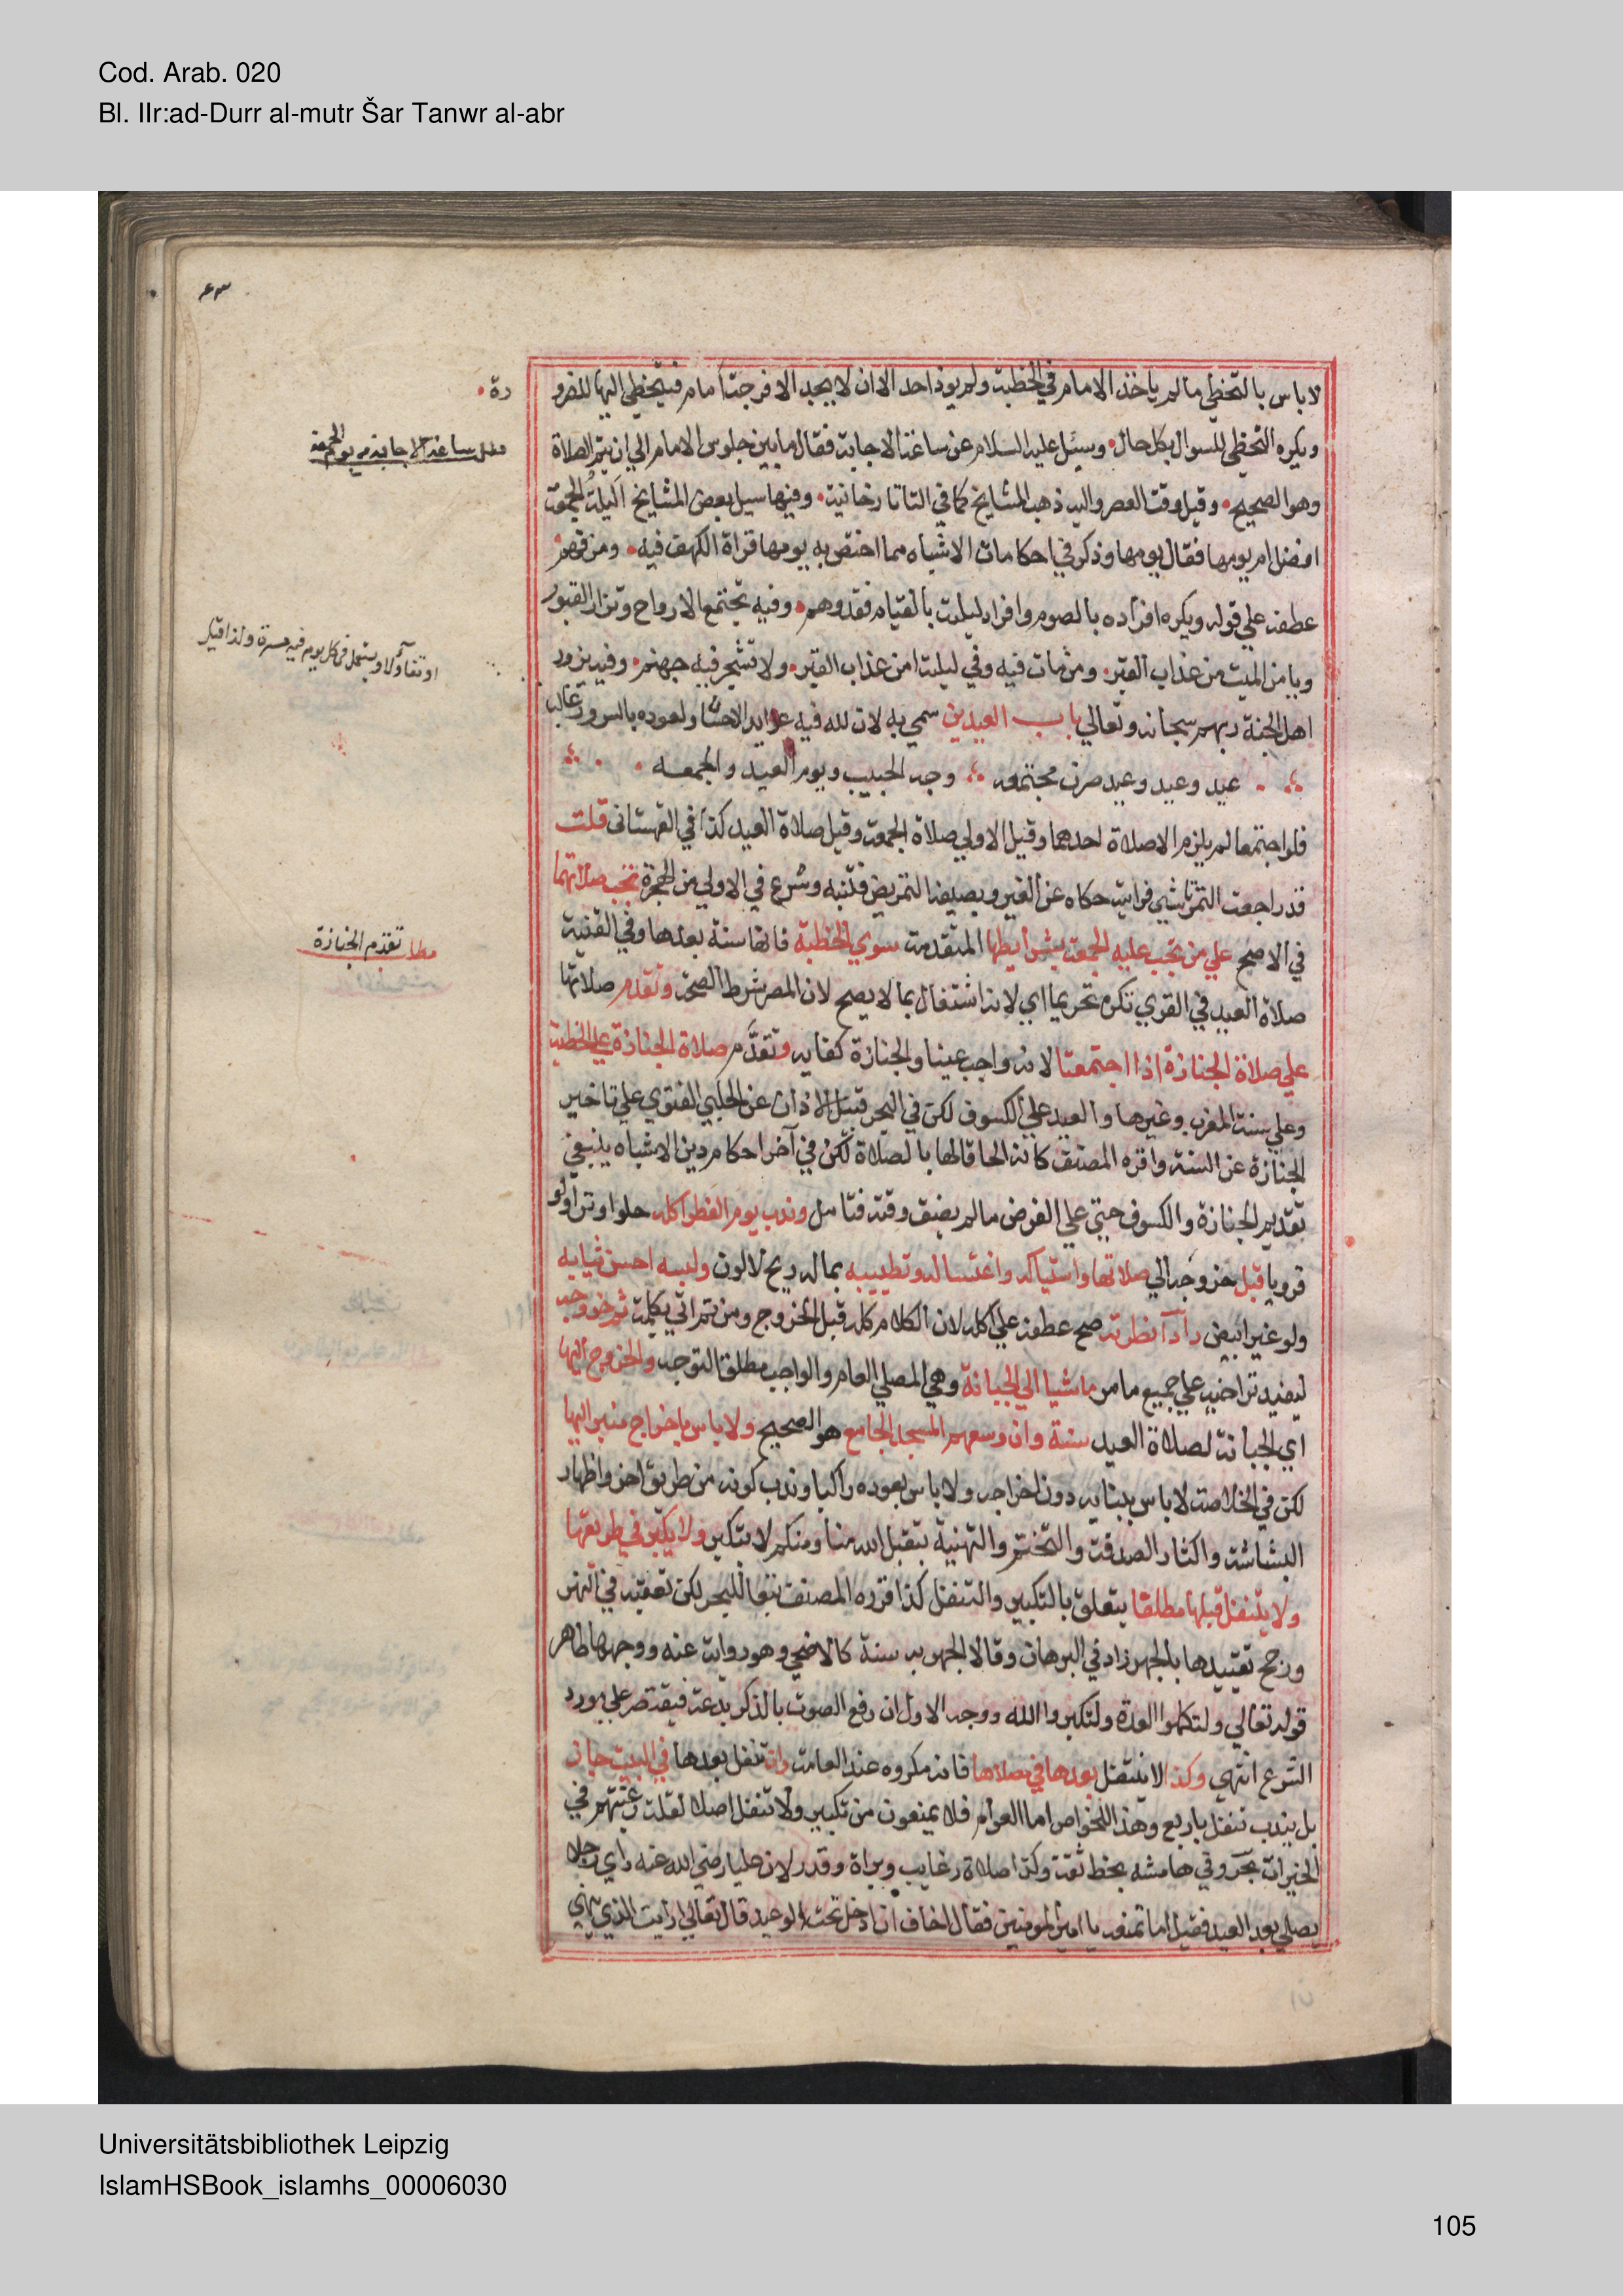 Cod. Arab. 020
Bl. IIr:ad-Durr al-mutr Šar Tanwr al-abr
٤٣
لا باس بالتخطي ما لم ياخذ الامام في الخطبة ولم يوذ احد الا ان لا يجد الا فرجة امام فيتخطي اليها للضرو
رة
ويكره التخطي للسوال بكل حال وسيئل عليه السلام عن ساعة الاجابة فقال ما بين جلوس الامام الي ان يتم الصلاة
مطلب ساعة الاجابة من يوم الجمعة
وهو الصحيح وقيل وقت العصر واليه ذهب المشايخ كما في التاتارخانية وفيها سيل بعض المشايخ اليلة الجمعة
افضل ام يومها فقال يومها وذكر في احكامات الاشباه مما اختص به يومها قراة الكهف فيه ومن فهم
عطفه علي قوله ويكره افراده بالصوم وافراد ليلته بالقيام فقد وهم وفيه تجتمع الارواح وتزار القبور
ويامن الميت من عذاب القبر ومن مات فيه وفي ليلته امن عذاب القبر ولا تسجر فيه جهنم وفيه يزور
اهل الجنة ربهم سبحانه وتعالي باب العيدين سمي به لان لله فيه عوايد الاحسان ولعوده بالسرور غالبا
او تفاؤلا ويستعمل في كل يوم فيه مسرة ولذا قيل
عيد وعيد وعيد صرن مجتمعه وجه الحبيب ويوم العيد والجمعه
فلو اجتمعا لم يلزم الا صلاة احدهما وقيل الاولي صلاة الجمعة وقيل صلاة العيد كذا في القهستاني قلت
قد راجعت التمرتاشي فرايته حكاه عن الغير وبصيغة التمريض فتنبه وشرع في الاولي من الهجرة تجب صلاتهما
في الاصح علي من تجب عليه الجمعة بشرايطها المتقدمة سوي الخطبة فانها سنة بعدها وفي القنية
صلاة العيد في القري تكره تحريما اي لانه اشتغال بما لا يصح لان المصر شرط الصحة وتقدم صلاتها
مطلب تقدم الجنازة
علي صلاة الجنازة اذا اجتمعتا لانه واجب عينا والجنازة كفاية وتقدم صلاة الجنازة علي الخطبة
وعلي سنة المغرب وغيرها والعيد علي الكسوف لكن في البحر قبيل الاذان عن الحلبي الفتوي علي تاخير
الجنازة عن السنة واقره المصنف كانه الحاقا لها بالصلاة لكن في آخر احكام دين الاشباه ينبغي
تقديم الجنازة والكسوف حتي علي الفرض ما لم يضق وقته فتامل وندب يوم الفطر اكله حلوا وترا ولو
قرويا قبل خروجه الي صلاتها واستياكه واغتساله وتطييبه بما له ريح لا لون ولبسه احسن ثيابه
ولو غير ابيض وادآ فطرته صح عطفه علي اكله لان الكلام كله قبل الخروج ومن ثم اتي بكلمة ثم خروجه
ليفيد تراخيه علي جميع ما مر ماشيا الي الجبانة وهي المصلي العام والواجب مطلق التوجه والخروج اليها
اي الجبانة لصلاة العيد سنة وان وسعهم المسجد الجامع هو الصحيح ولا باس باخراج منبر اليها
لكن في الخلاصة لا باس ببنايه دون اخراجه ولا باس بعوده راكبا وندب كونه من طريق اخر واظهار
البشاشة واكثار الصدقة والتختم والتهنية بتقبل الله منا ومنكم لا تنكر ولا يكبر في طريقها
ولا يتنفل قبلها مطلقا يتعلق بالتكبير والتنفل كذا قرره المصنف تبعا للبحر لكن تعقبه في النهر
ورجح تقييدها بالجهر زاد في البرهان وقالا الجهر به سنة كالاضحي وهو رواية عنه ووجهها ظاهر
قوله تعالي ولتكملوا العدة ولتكبروا الله ووجه الاول ان رفع الصوت بالذكر بدعة فيقتصر علي مورد
الشرع انتهي وكذا لا يتنفل بعدها في مصلاها فانه مكروه عند العامة وان تنفل بعدها في البيت جاز
بل يندب تنفل باربع وهذا للخواص اما العوام فلا يمنعون من تكبير ولا تنفل اصلا لقلة رغبتهم في
الخيرات بحر وفي هامشه بخط ثقة وكذا صلاة رغايب وبراة وقدر لان عليا رضي الله عنه راي رجلا
يصلي بعد العيد فقيل اما تمنعه يا امير المومنين فقال اخاف ان ادخل تحت الوعيد قال تعالي ارايت الذي ينهي
Universitätsbibliothek Leipzig
IslamHSBook_islamhs_00006030
105